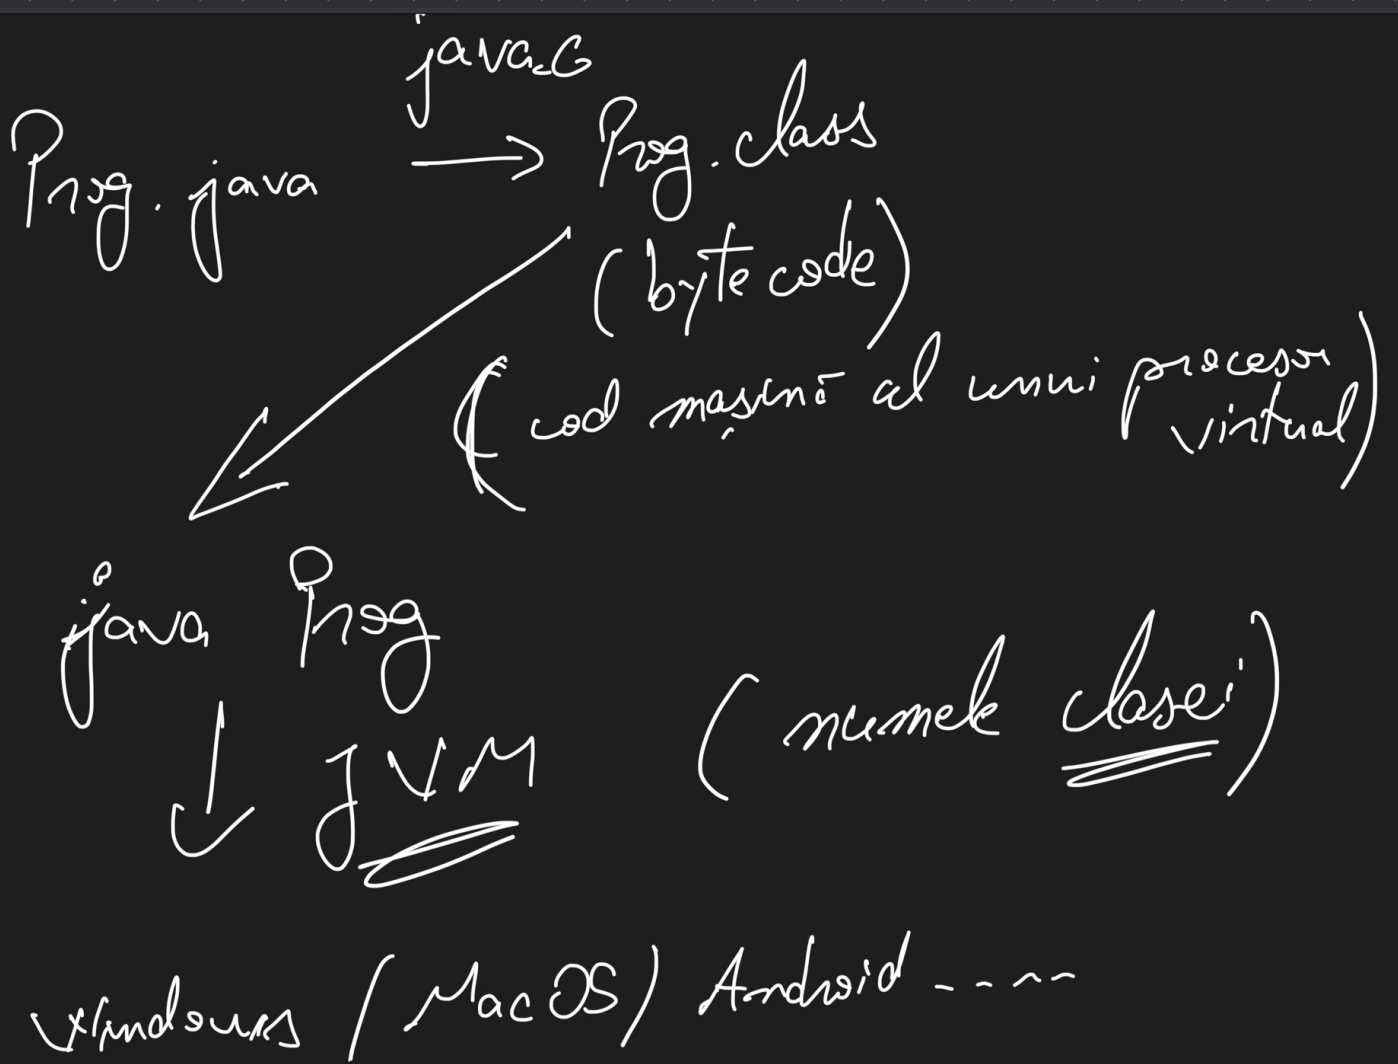 javac
Prog.java → Prog.class
(byte code)
(cod mașină al unui procesor
virtual)
java Prog
(numele clasei)
JVM
Windows / MacOS / Android ----